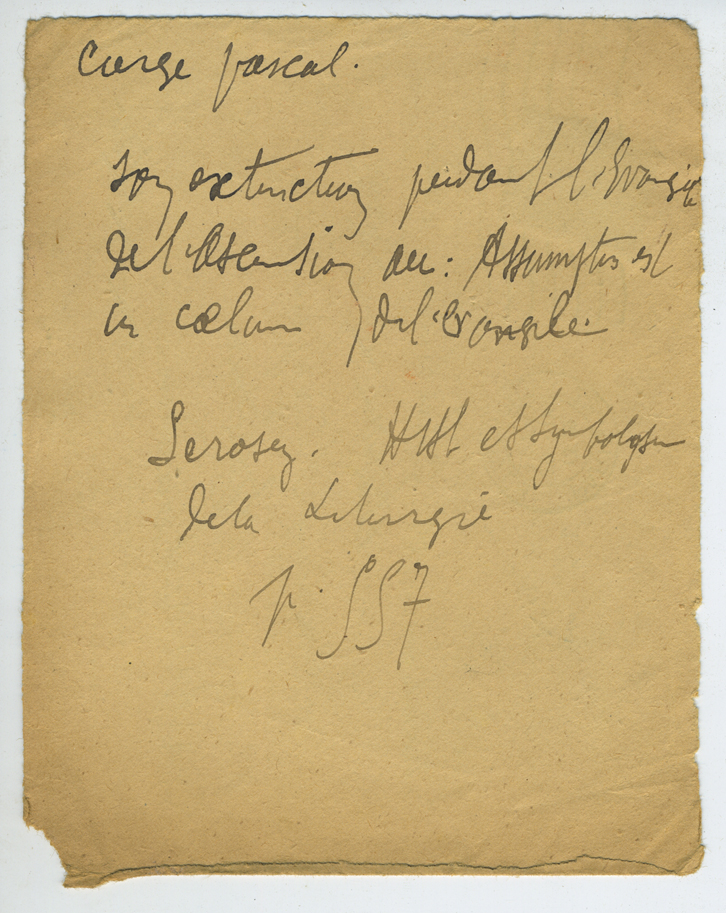 Cierge pascal.
Son extinction pendant l'Evangile
de l'Ascension au : Assumptus est
in cœlum de l'Evangile
Lerosey. Hist et Symbolisme
de la Liturgie
p. 557